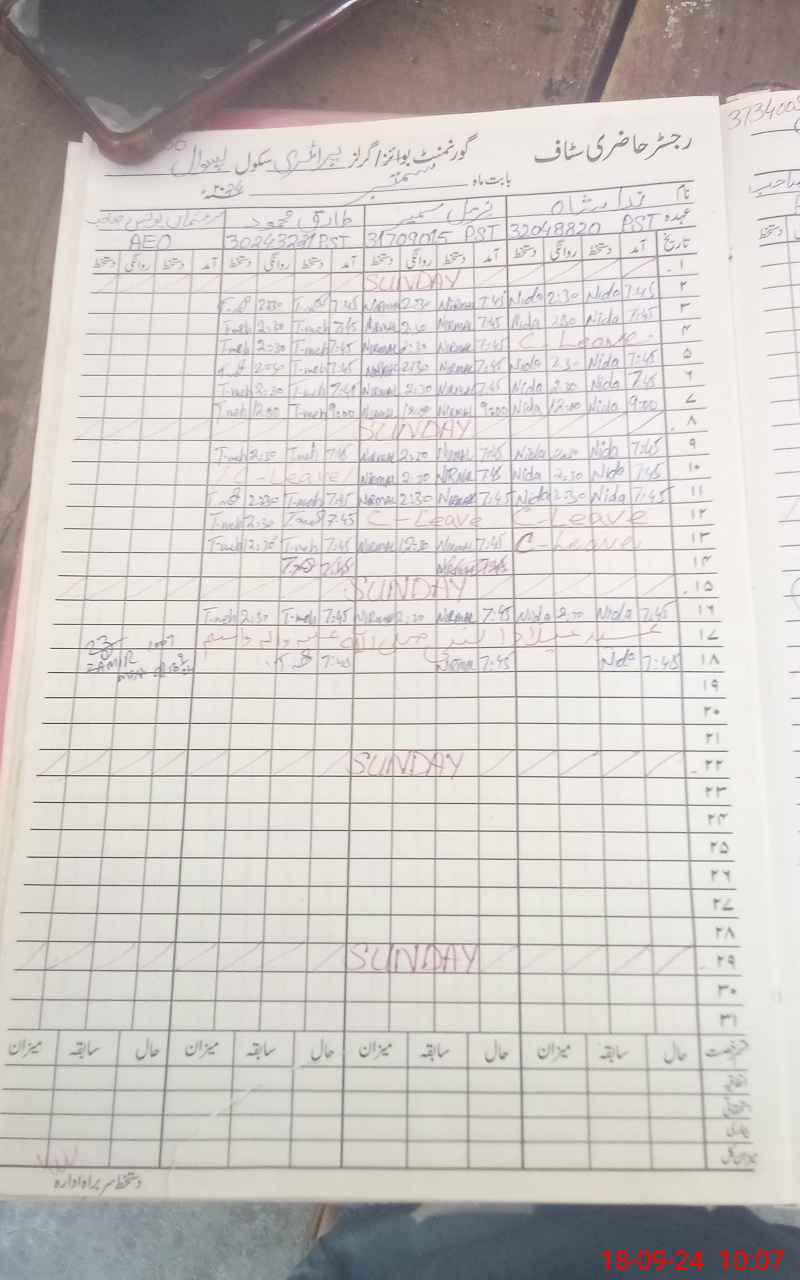 رجسٹر حاضری سٹاف گورنمنٹ بوائز/گرلز پرائمری سکول
بابت ماہ ستمبر ۲۰۲۴
نام ندا طارق محمود
عہدہ 32048820 PST 31709015 PST 30243231 PST AEO
تاریخ آمد دستخط روانگی دستخط آمد دستخط روانگی دستخط آمد دستخط روانگی دستخط آمد دستخط روانگی دستخط
۱ SUNDAY
۲ 7:45 Nida 2:30 Nida 7:45 Nirmal 2:30 Nirmal 7:45 2:30
۳ 7:45 Nida 2:30 Nida 7:45 Nirmal 2:30 Nirmal 7:45 T-meh 2:30 T-meh
۴ C-Leave 7:45 Nirmal 2:30 Nirmal 7:45 T-meh 2:30 T-meh
۵ 7:45 Nida 2:30 Nida 7:45 Nirmal 2:30 Nirmal 7:45 T-meh 2:30
۶ 7:45 Nida 2:30 Nida 7:45 Nirmal 2:30 Nirmal 7:45 T-meh 2:30 T-meh
۷ 9:00 Nida 12:00 Nida 9:00 Nirmal 12:00 Nirmal 9:00 T-meh 12:00 T-meh
۸ SUNDAY
۹ 7:45 Nida 2:30 Nida 7:45 Nirmal 2:30 Nirmal 7:45 T-meh 2:30 T-meh
۱۰ 7:45 Nida 2:30 Nida 7:45 Nirmal 2:30 Nirmal C-Leave
۱۱ 7:45 Nida 2:30 Nida 7:45 Nirmal 2:30 Nirmal 7:45 T-meh 2:30
۱۲ C-Leave C-Leave 7:45 2:30 T-meh
۱۳ C-Leave 7:45 Nirmal 12:30 Nirmal 7:45 T-meh 12:30 T-meh
۱۴ 7:45 Nirmal 7:45
۱۵ SUNDAY
۱۶ 7:45 Nida 2:30 Nida 7:45 Nirmal 2:30 Nirmal 7:45 T-meh 2:30 T-meh
۱۷ عید میلاد النبی صلی اللہ علیہ والہ وسلم
۱۸ 7:45 Nida 7:45 Nirmal 7:45
ZAMIR
۱۹
۲۰
۲۱
۲۲ SUNDAY
۲۳
۲۴
۲۵
۲۶
۲۷
۲۸
۲۹ SUNDAY
۳۰
۳۱
قسم رخصت حال سابقہ میزان حال سابقہ میزان حال سابقہ میزان حال سابقہ میزان
اتفاقیہ
استحقاقی
بیماری
میزان کل
دستخط سربراہ ادارہ
18-09-24 10:07